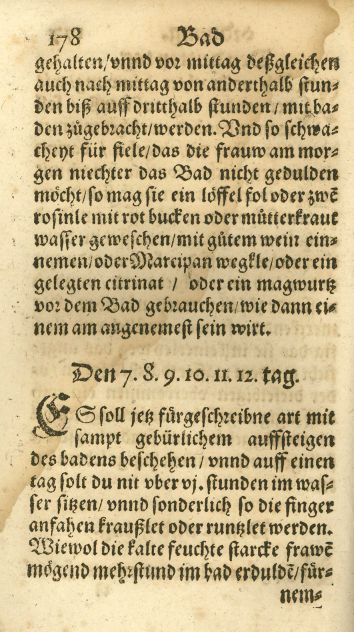 178 Bad
gehalten/vnnd vor mittag deßgleichen
auch nach mittag von anderthalb stun-
den biß auff dritthalb stunden/mit ba-
den zůgebracht/werden. Vnd so schwa-
cheyt für fiele/das die frauw am mor-
gen niechter das Bad nicht gedulden
möcht/so mag sie ein löffel fol oder zwē
rosinle mit rot bucken oder můtterkraut
wasser geweschen/mit gůtem wein ein-
nemen/oder Marcipan wegkle/oder ein
gelegten citrinat / oder ein magwurtz
vor dem Bad gebrauchen/wie dann ei-
nem am angenemest sein wirt.
Den 7. 8. 9. 10. 11. 12. tag.
ES soll jetz fürgeschreibne art mit
sampt gebürlichem auffsteigen
des badens beschehen/vnnd auff einen
tag solt du nit vber vj. stunden im was-
ser sitzen/vnnd sonderlich so die finger
anfahen kraußlet oder runtzlet werden.
Wiewol die kalte feuchte starcke frawē
mögend mehr stund im bad erduldē/für-
nem-